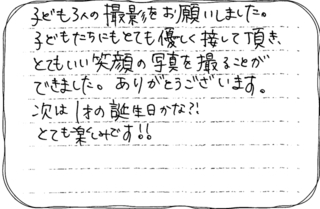 子ども3人の撮影をお願いしました。
子どもたちにもとても優しく接して頂き、
とてもいい笑顔の写真を撮ることが
できました。ありがとうございます。
次は1才の誕生日かな?!
とても楽しみです!!